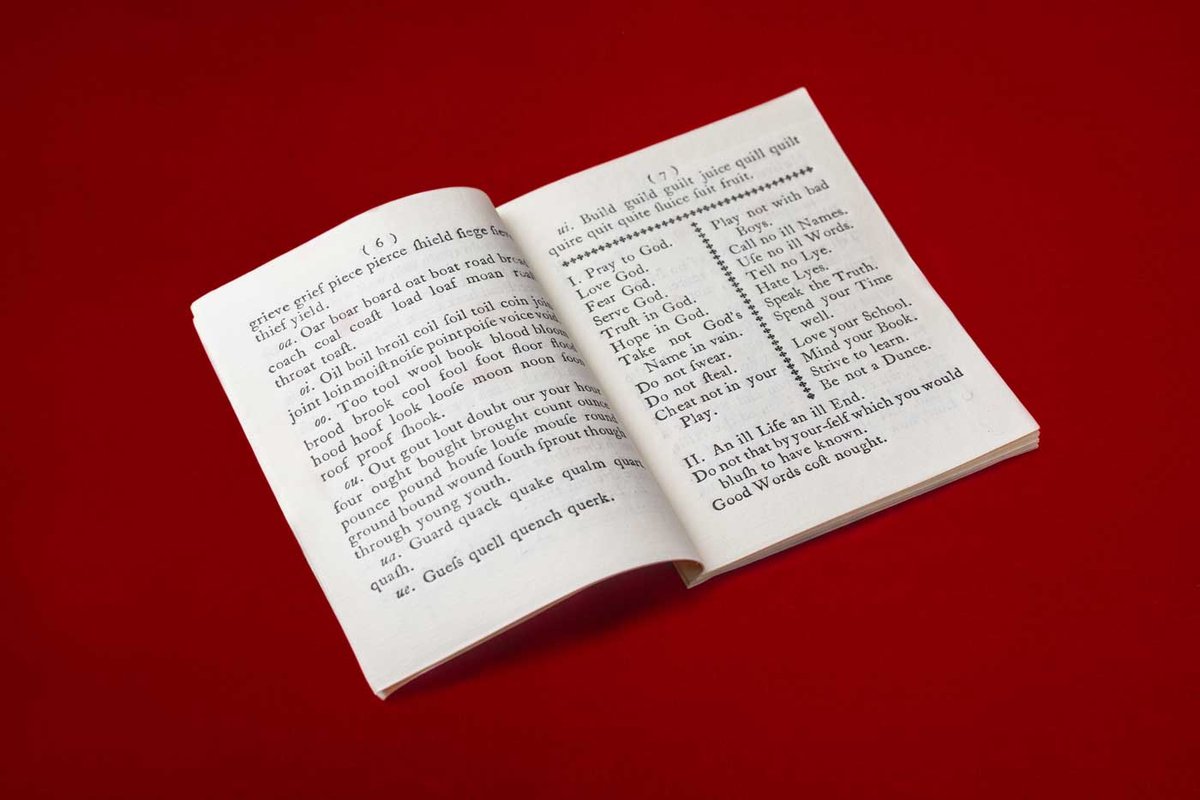 ( 6 )
grieve grief piece pierce ſhield ſiege
thief yield.
oa. Oar boar board oat boat road broad
coach coal coaſt load loaf moan
throat toaſt.
oi. Oil boil broil coil ſoil toil coin
joint loin moiſt noiſe point poiſe voice
oo. Too tool wool book blood bloom
brood brook cool fool foot floor flood
hood hoof look looſe moon noon ſoon
roof proof ſhook.
ou. Out gout lout doubt our your hour
four ought bought brought count ounce
pounce pound houſe louſe mouſe round
ground bound wound ſouth ſprout though
through young youth.
ua. Guard quack quake qualm quart
quaſh.
ue. Gueſs quell quench querk.
( 7 )
ui. Build guild guilt juice quill quilt
quire quit quite ſluice ſuit fruit.
I. Pray to God.
Love God.
Fear God.
Serve God.
Truſt in God.
Hope in God.
Take not God's
Name in vain.
Do not ſwear.
Do not ſteal.
Cheat not in your
Play.
Play not with bad
Boys.
Call no ill Names.
Uſe no ill Words.
Tell no Lye.
Hate Lyes.
Speak the Truth.
Spend your Time
well.
Love your School.
Mind your Book.
Strive to learn.
Be not a Dunce.
II. An ill Life an ill End.
Do not that by your-ſelf which you would
bluſh to have known.
Good Words coſt nought.